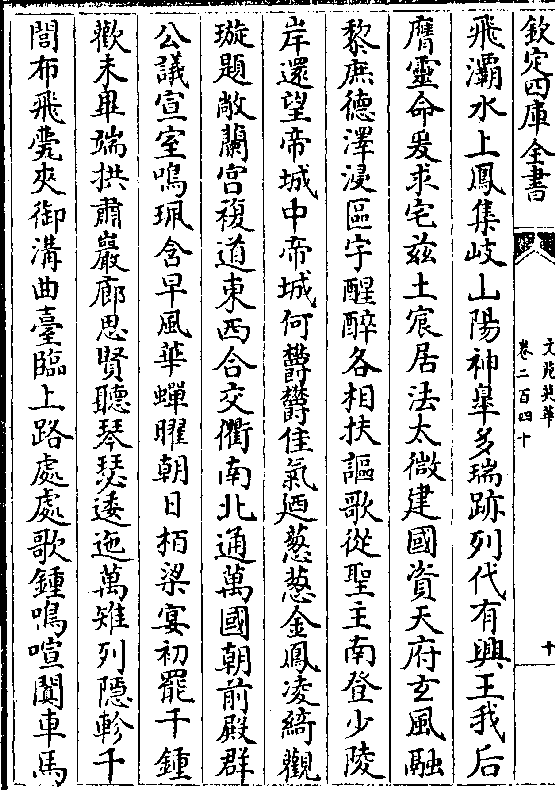 欽定四庫全書
文苑英華
卷二百四十
十
飛灞水上鳳集岐山陽神臯多瑞跡列代有興王我后
膺靈命爰求宅兹土宸居法太微建國資天府玄風融
黎庶德澤浸區宇醒醉各相扶謳歌從聖主南登少陵
岸還望帝城中帝城何鬱鬱佳氣廼葱葱金鳳凌綺觀
璇題敞蘭宫複道東西合交衢南北通萬國朝前殿群
公議宣室鳴珮含早風華蟬曜朝日栢梁宴初罷千鍾
歡未畢端拱肅巖廊思賢聽琴瑟逶迤萬雉列隱軫千
閭布飛甍夾御溝曲臺臨上路處處歌鍾鳴喧闐車馬